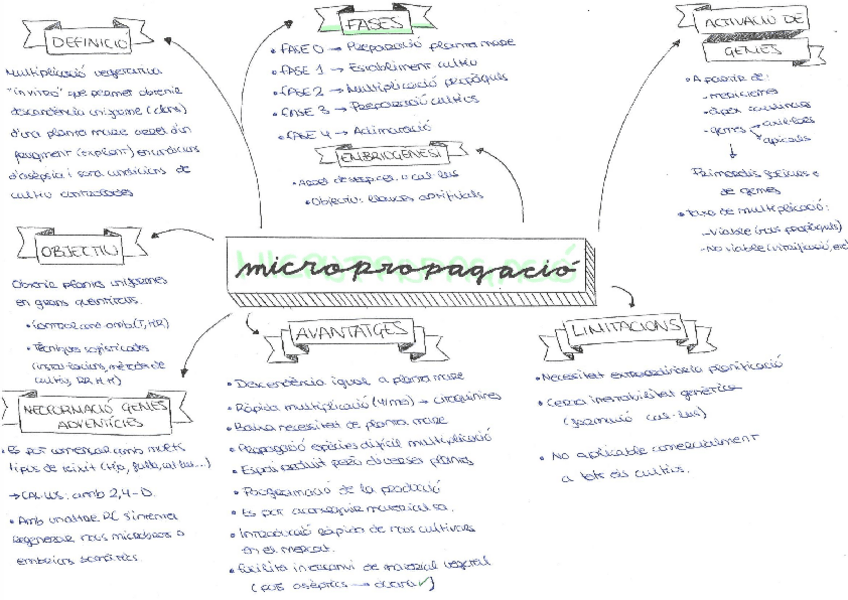 DEFINICIÓ
Multiplicació vegetativa
"in vitro" que permet obtenir
descendència uniforme (clons)
d'una planta mare a partir d'un
fragment (explant) en condicions
d'asèpsia i sota condicions de
cultiu controlades
FASES
• FASE 0 → Preparació planta mare
• FASE 1 → Establiment cultiu
• FASE 2 → Multiplicació propàguls
• FASE 3 → Preparació cultius
• FASE 4 → Aclimatació
EMBRIOGÈNESI
• Objectiu: llavors artificials
ACTIVACIÓ DE
GEMES
• A partir de:
- meristemes
- gemes axil·lars
apicals
de gemes
• Taxa de multiplicació:
- Viable (nous propàguls)
- No viable (vitrificació, etc)
micropropagació
OBJECTIU
Obtenir plantes uniformes
en grans quantitats.
• Control amb (T, HR)
• Tècniques sofisticades
(instal·lacions, mètodes de
NEOFORMACIÓ GEMES
ADVENTÍCIES
• Es pot començar amb molts
tipus de teixit
→ CAL·LUS: amb 2,4-D.
regenerar nous microbrots o
embrions somàtics.
AVANTATGES
• Descendència igual a planta mare
• Ràpida multiplicació
• Baixa necessitat de planta mare
• Propagació espècies difícil multiplicació
• Espai reduït però diverses plantes
• Programació de la producció
• Es pot aconseguir material sa.
• Introducció ràpida de nous cultivars
en el mercat.
• Facilita intercanvi de material vegetal
LIMITACIONS
• Necessitat extraordinària planificació
• Certa inestabilitat genètica
(formació cal·lus)
• No aplicable comercialment
a tots els cultius.